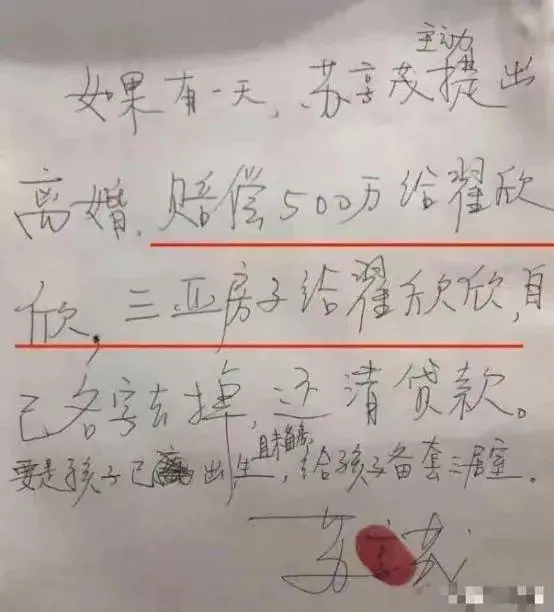 如果有一天，苏享茂主动提出
离婚，赔偿500万给翟欣
欣，三亚房子给翟欣欣，自
己名字去掉，还清贷款。
要是孩子已出生，且未备房，给孩子备套三居室。
苏享茂